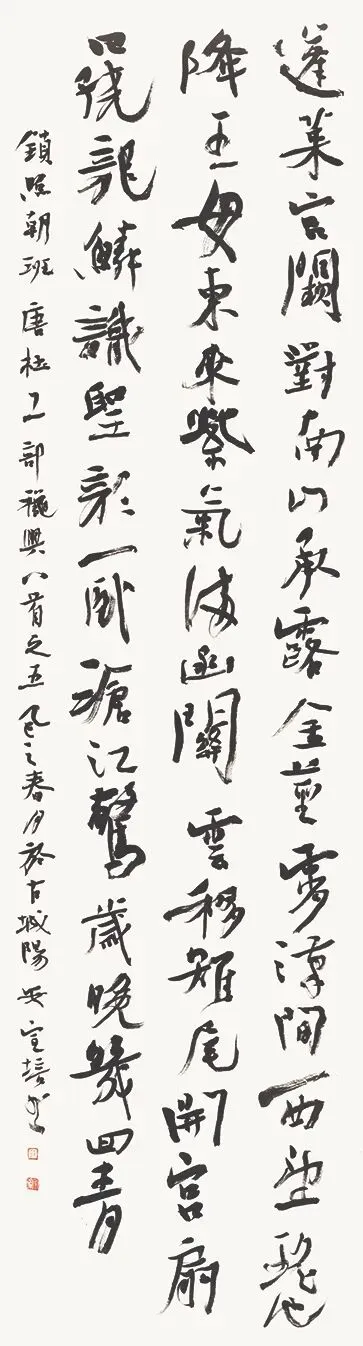 蓬萊宮闕對南山承露金莖霄漢間西望瑤池
降王母東來紫氣滿函關雲移雉尾開宮扇
日繞龍鱗識聖顏一臥滄江驚歲晚幾回青
鎖照朝班 唐杜工部穐興八首之五 乙巳之春月於古城陽安宣培書